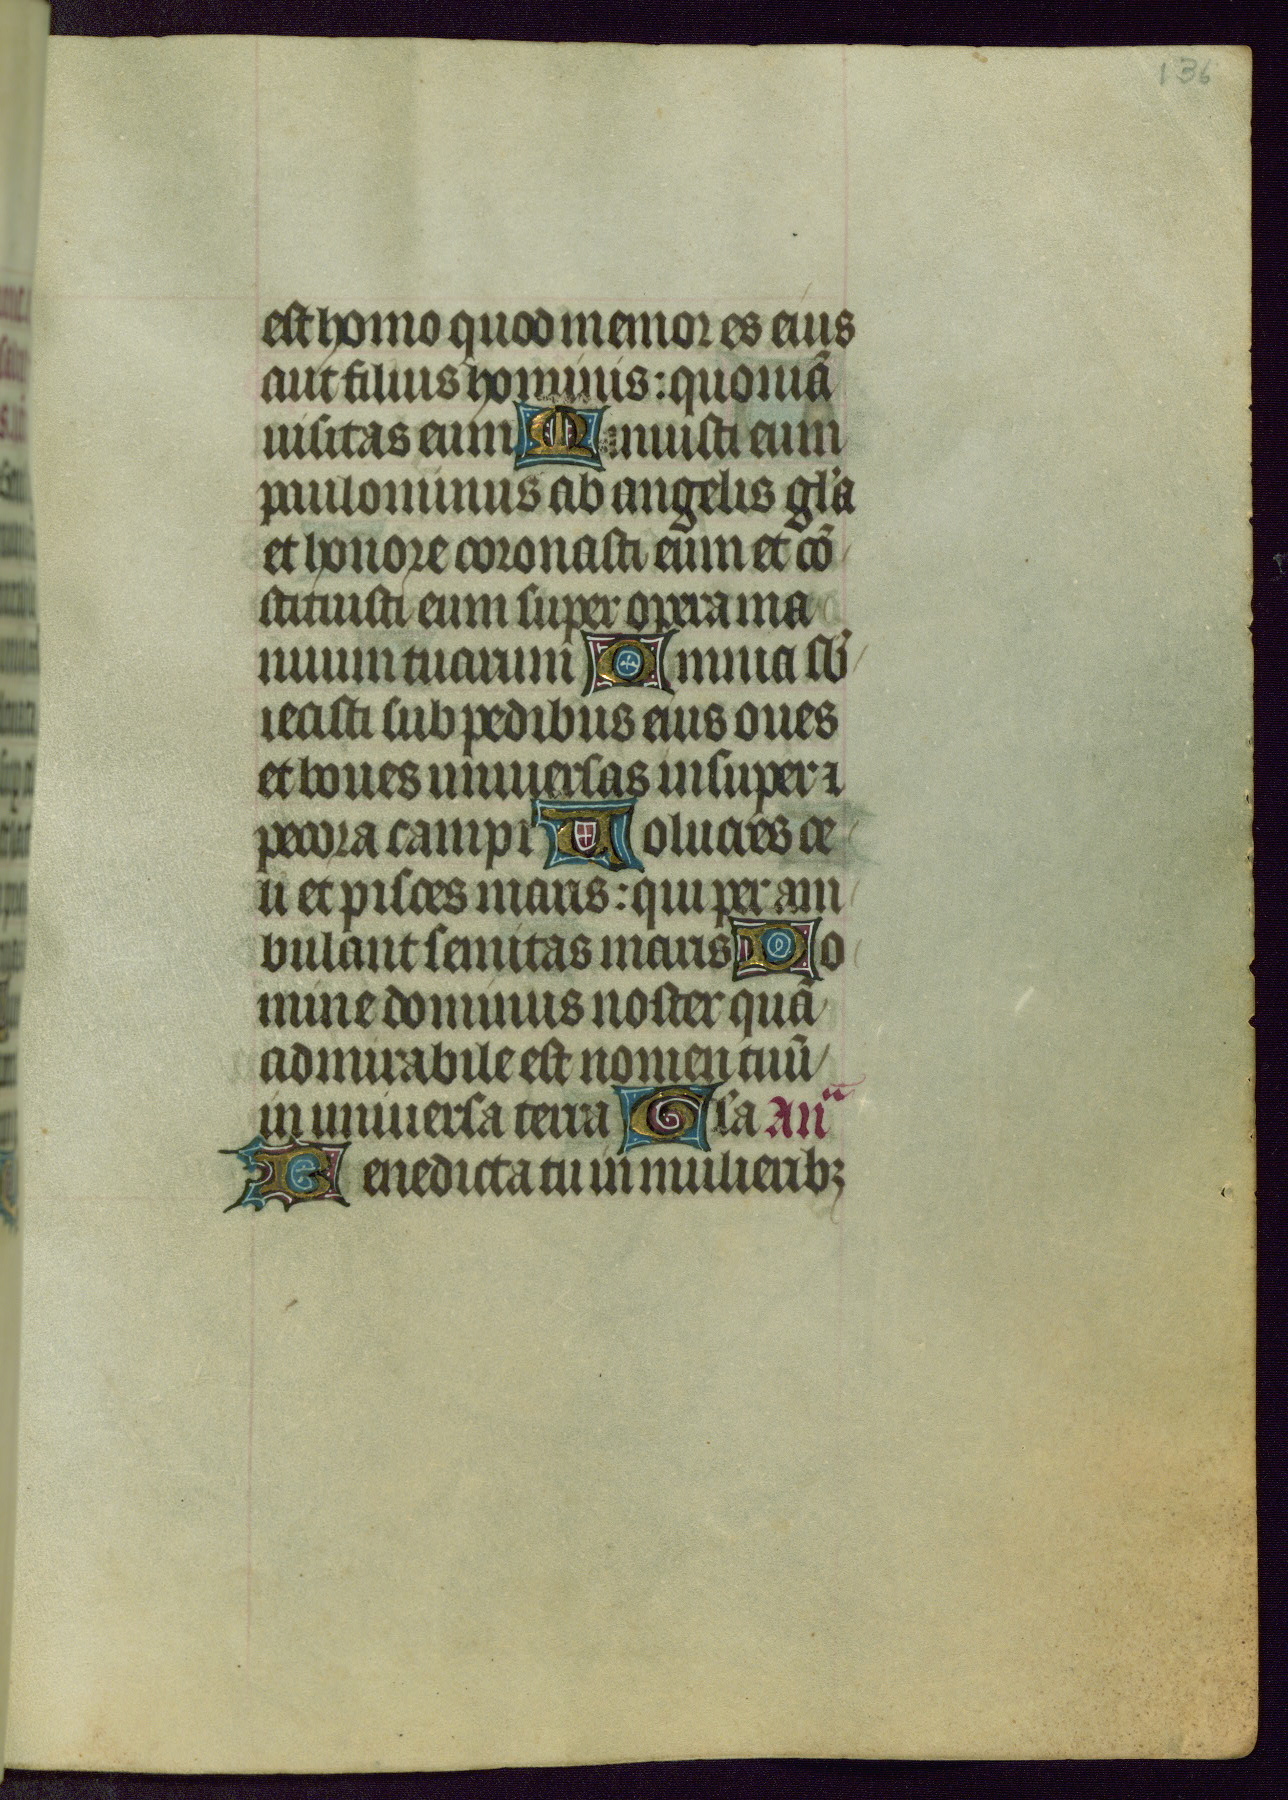 136
est homo quod memor es eius
aut filius hominis : quoniã
uisitas eum Minuisti eum
paulominus ab angelis gl'a
et honore coronasti eum et cõ
stituisti eum super opera ma
nuum tuarum Omnia sb'
iecisti sub pedibus eius oues
et boues uniuersas insuper ⁊
pecora campi Uolucres ce
li et pisces maris : qui per am
bulant semitas maris Do
mine dominus noster quã
admirabile est nomen tuũ
in uniuersa terra Gl'a An̄
Benedicta tu in mulieribꝫ